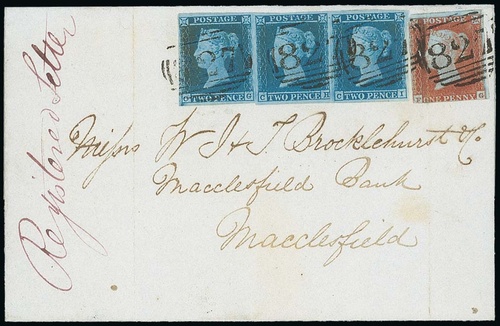 POSTAGE POSTAGE POSTAGE POSTAGE
827 827 827 827
C G TWO PENCE C H TWO PENCE C I TWO PENCE ONE PENNY G
Registered Letter
Messrs W & J & T. Brocklehurst & Co.
Macclesfield Bank
Macclesfield